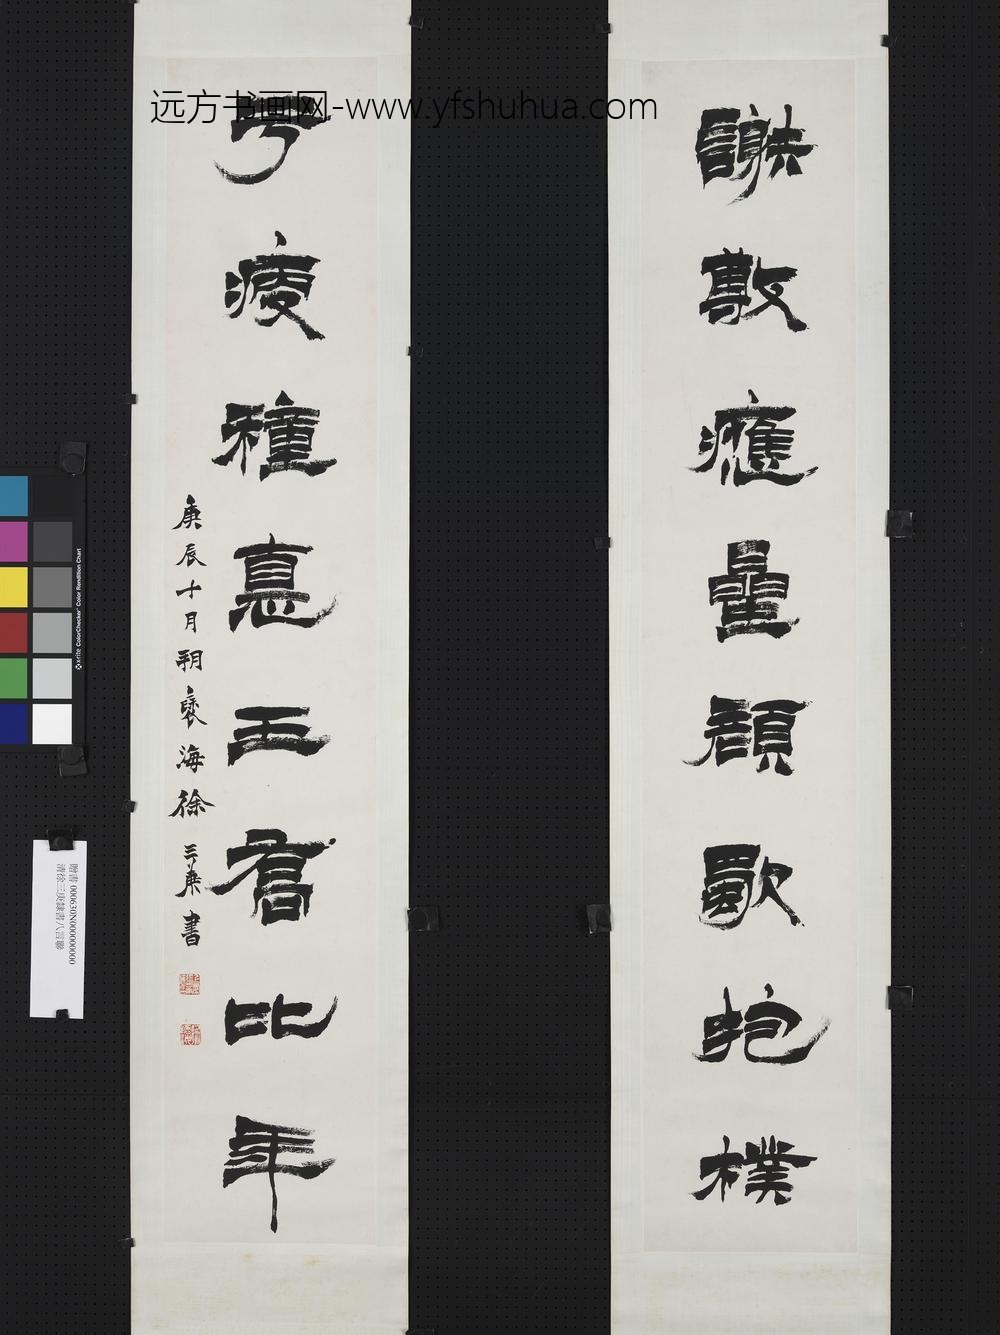 远方书画网-www.yfshuhua.com
謝敷應量顏歜抱樸
丂疲種惪王喬比年
庚辰十月朔襃海徐三庚書
x·rite ColorChecker Color Rendition Chart
贈書 000630N000000000
清徐三庚隸書八言聯